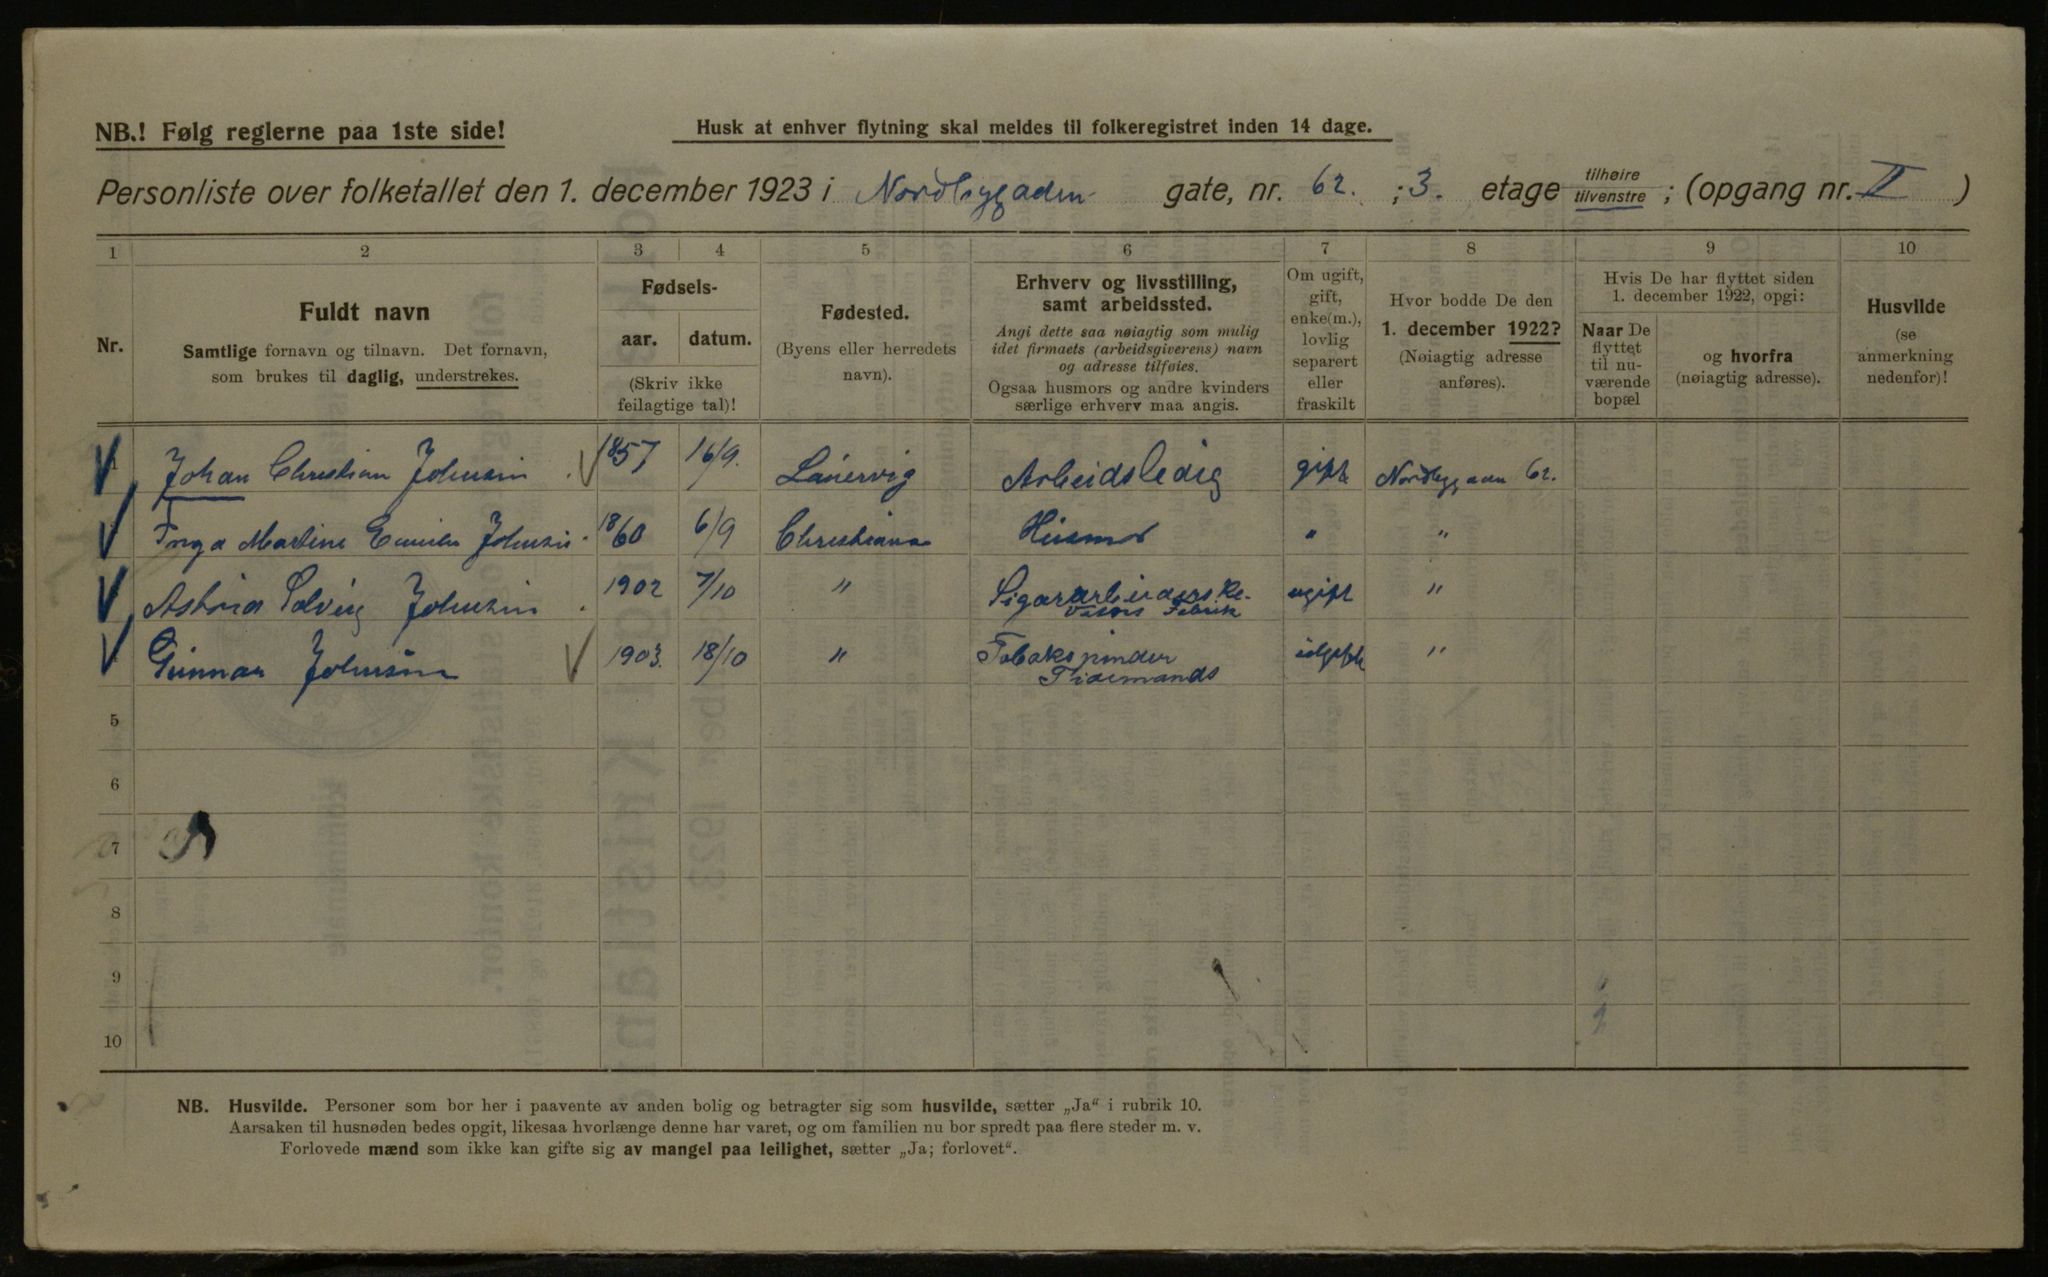 NB.! Følg reglerne paa 1ste side!
Husk at enhver flytning skal meldes til folkeregistret inden 14 dage.
Personliste over folketallet den 1. december 1923 i Nordbyggaden gate, nr. 62. ; 3. etage tilhøire tilvenstre ; (opgang nr. II )
1 2 3 4 5 6 7 8 9 10
Nr.
Fuldt navn
Samtlige fornavn og tilnavn. Det fornavn,
som brukes til daglig, understrekes.
Fødsels-
aar. datum.
(Skriv ikke
feilagtige tal)!
Fødested.
(Byens eller herredets
navn).
Erhverv og livsstilling,
samt arbeidssted.
Angi dette saa nøiagtig som mulig
idet firmaets (arbeidsgiverens) navn
og adresse tilføies.
Ogsaa husmors og andre kvinders
særlige erhverv maa angis.
Om ugift,
gift,
enke(m.),
lovlig
separert
eller
fraskilt
Hvor bodde De den
1. december 1922?
(Nøiagtig adresse
anføres).
Hvis De har flyttet siden
1. december 1922, opgi:
Naar De
flyttet
til nu-
værende
bopæl
og hvorfra
(nøiagtig adresse).
Husvilde
(se
anmerkning
nedenfor)!
Johan Christian Johnsen 1857 16/9. Laurvig Arbeidsledig gift Nordbyggaden 62.
Inga Martine Johnsen 1860 6/9 Christiania Husmor " "
Astrid Solveig Johnsen 1902 7/10 " Sigararbeiderske ugift "
Fabrik
Gunnar Johnsen 1903. 18/10 " Tobakspinder ugift "
Tidemands
5
6
7
8
9
10
NB. Husvilde. Personer som bor her i paavente av anden bolig og betragter sig som husvilde, sætter „Ja“ i rubrik 10.
Aarsaken til husnøden bedes opgit, likesaa hvorlænge denne har varet, og om familien nu bor spredt paa flere steder m. v.
Forlovede mænd som ikke kan gifte sig av mangel paa leilighet, sætter „Ja; forlovet“.